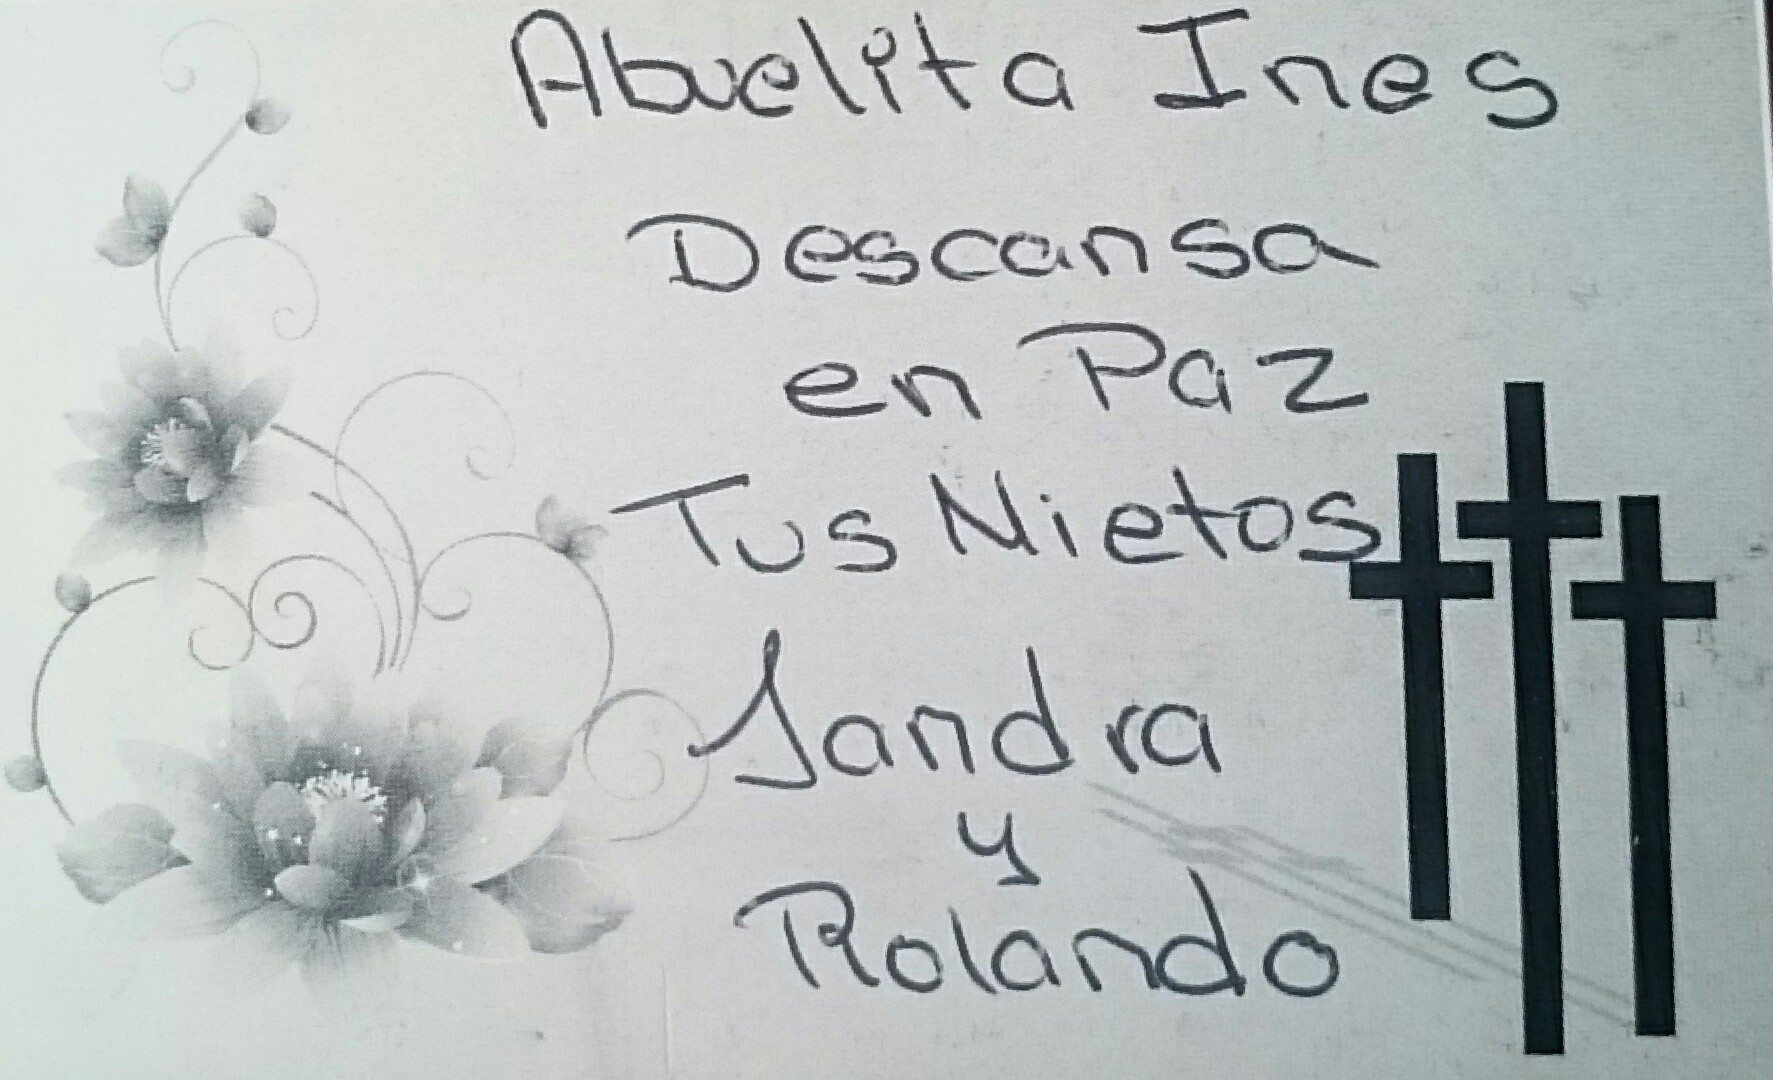 Abuelita Ines
Descansa
en Paz
Tus Nietos
Sandra
y
Rolando